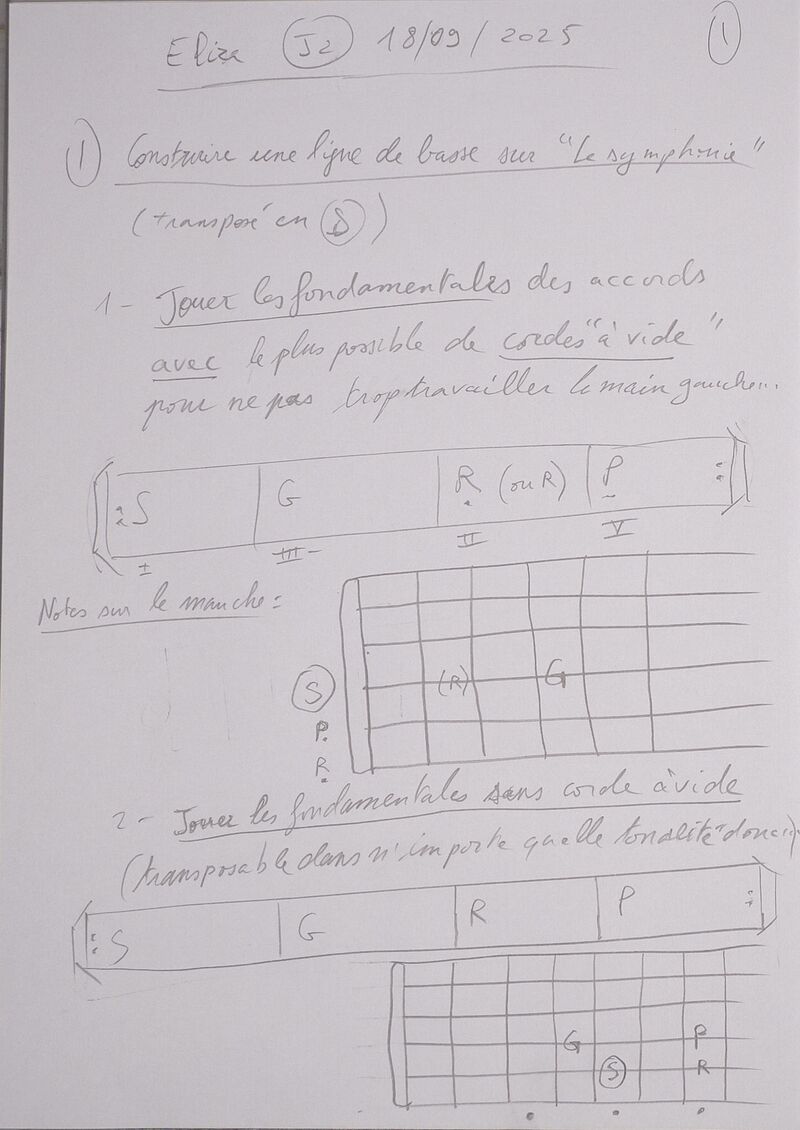 Eliza J2 18/09/2025 1
1 Construire une ligne de basse sur "Le symphonie"
(transposé en S)
1 - Jouer les fondamentales des accords
avec le plus possible de cordes "à vide"
pour ne pas trop travailler la main gauche...
S G R (ou R) P
I III- II V
Notes sur le manche =
S (R) G
P
R
2 - Jouer les fondamentales sans corde à vide
(transposable dans n'importe quelle tonalité donc)
S G R P
G P
S R